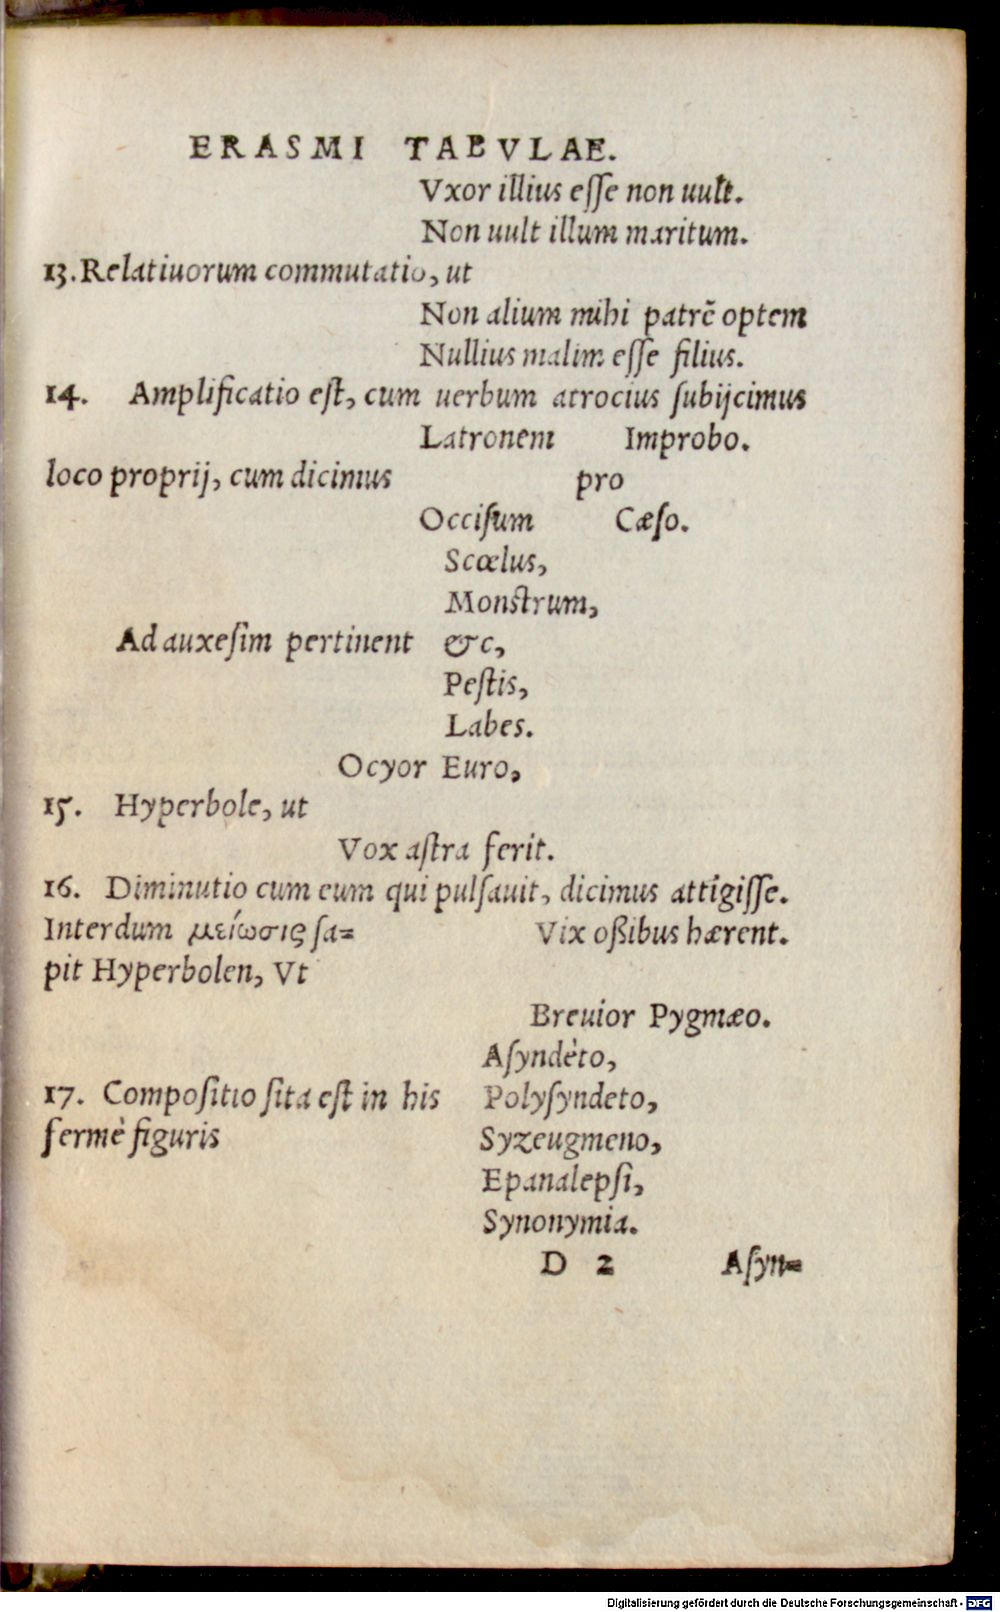 ERASMI TABVLAE.
Vxor illius esse non uult.
Non uult illum maritum.
13. Relatiuorum commutatio, ut
Non alium mihi patrẽ optem
Nullius malim esse filius.
14. Amplificatio est, cum uerbum atrocius subijcimus
Latronem Improbo.
loco proprij, cum dicimus pro
Occisum Cæso.
Scœlus,
Monstrum,
Ad auxesim pertinent &c,
Pestis,
Labes.
Ocyor Euro,
15. Hyperbole, ut
Vox astra ferit.
16. Diminutio cum eum qui pulsauit, dicimus attigisse.
Interdum μείωσις sa=
Vix oßibus hærent.
pit Hyperbolen, Vt
Breuior Pygmæo.
Asyndèto,
17. Compositio sita est in his Polysyndeto,
fermè figuris Syzeugmeno,
Epanalepsi,
Synonymia.
D 2 Asyn=
Digitalisierung gefördert durch die Deutsche Forschungsgemeinschaft - DFG